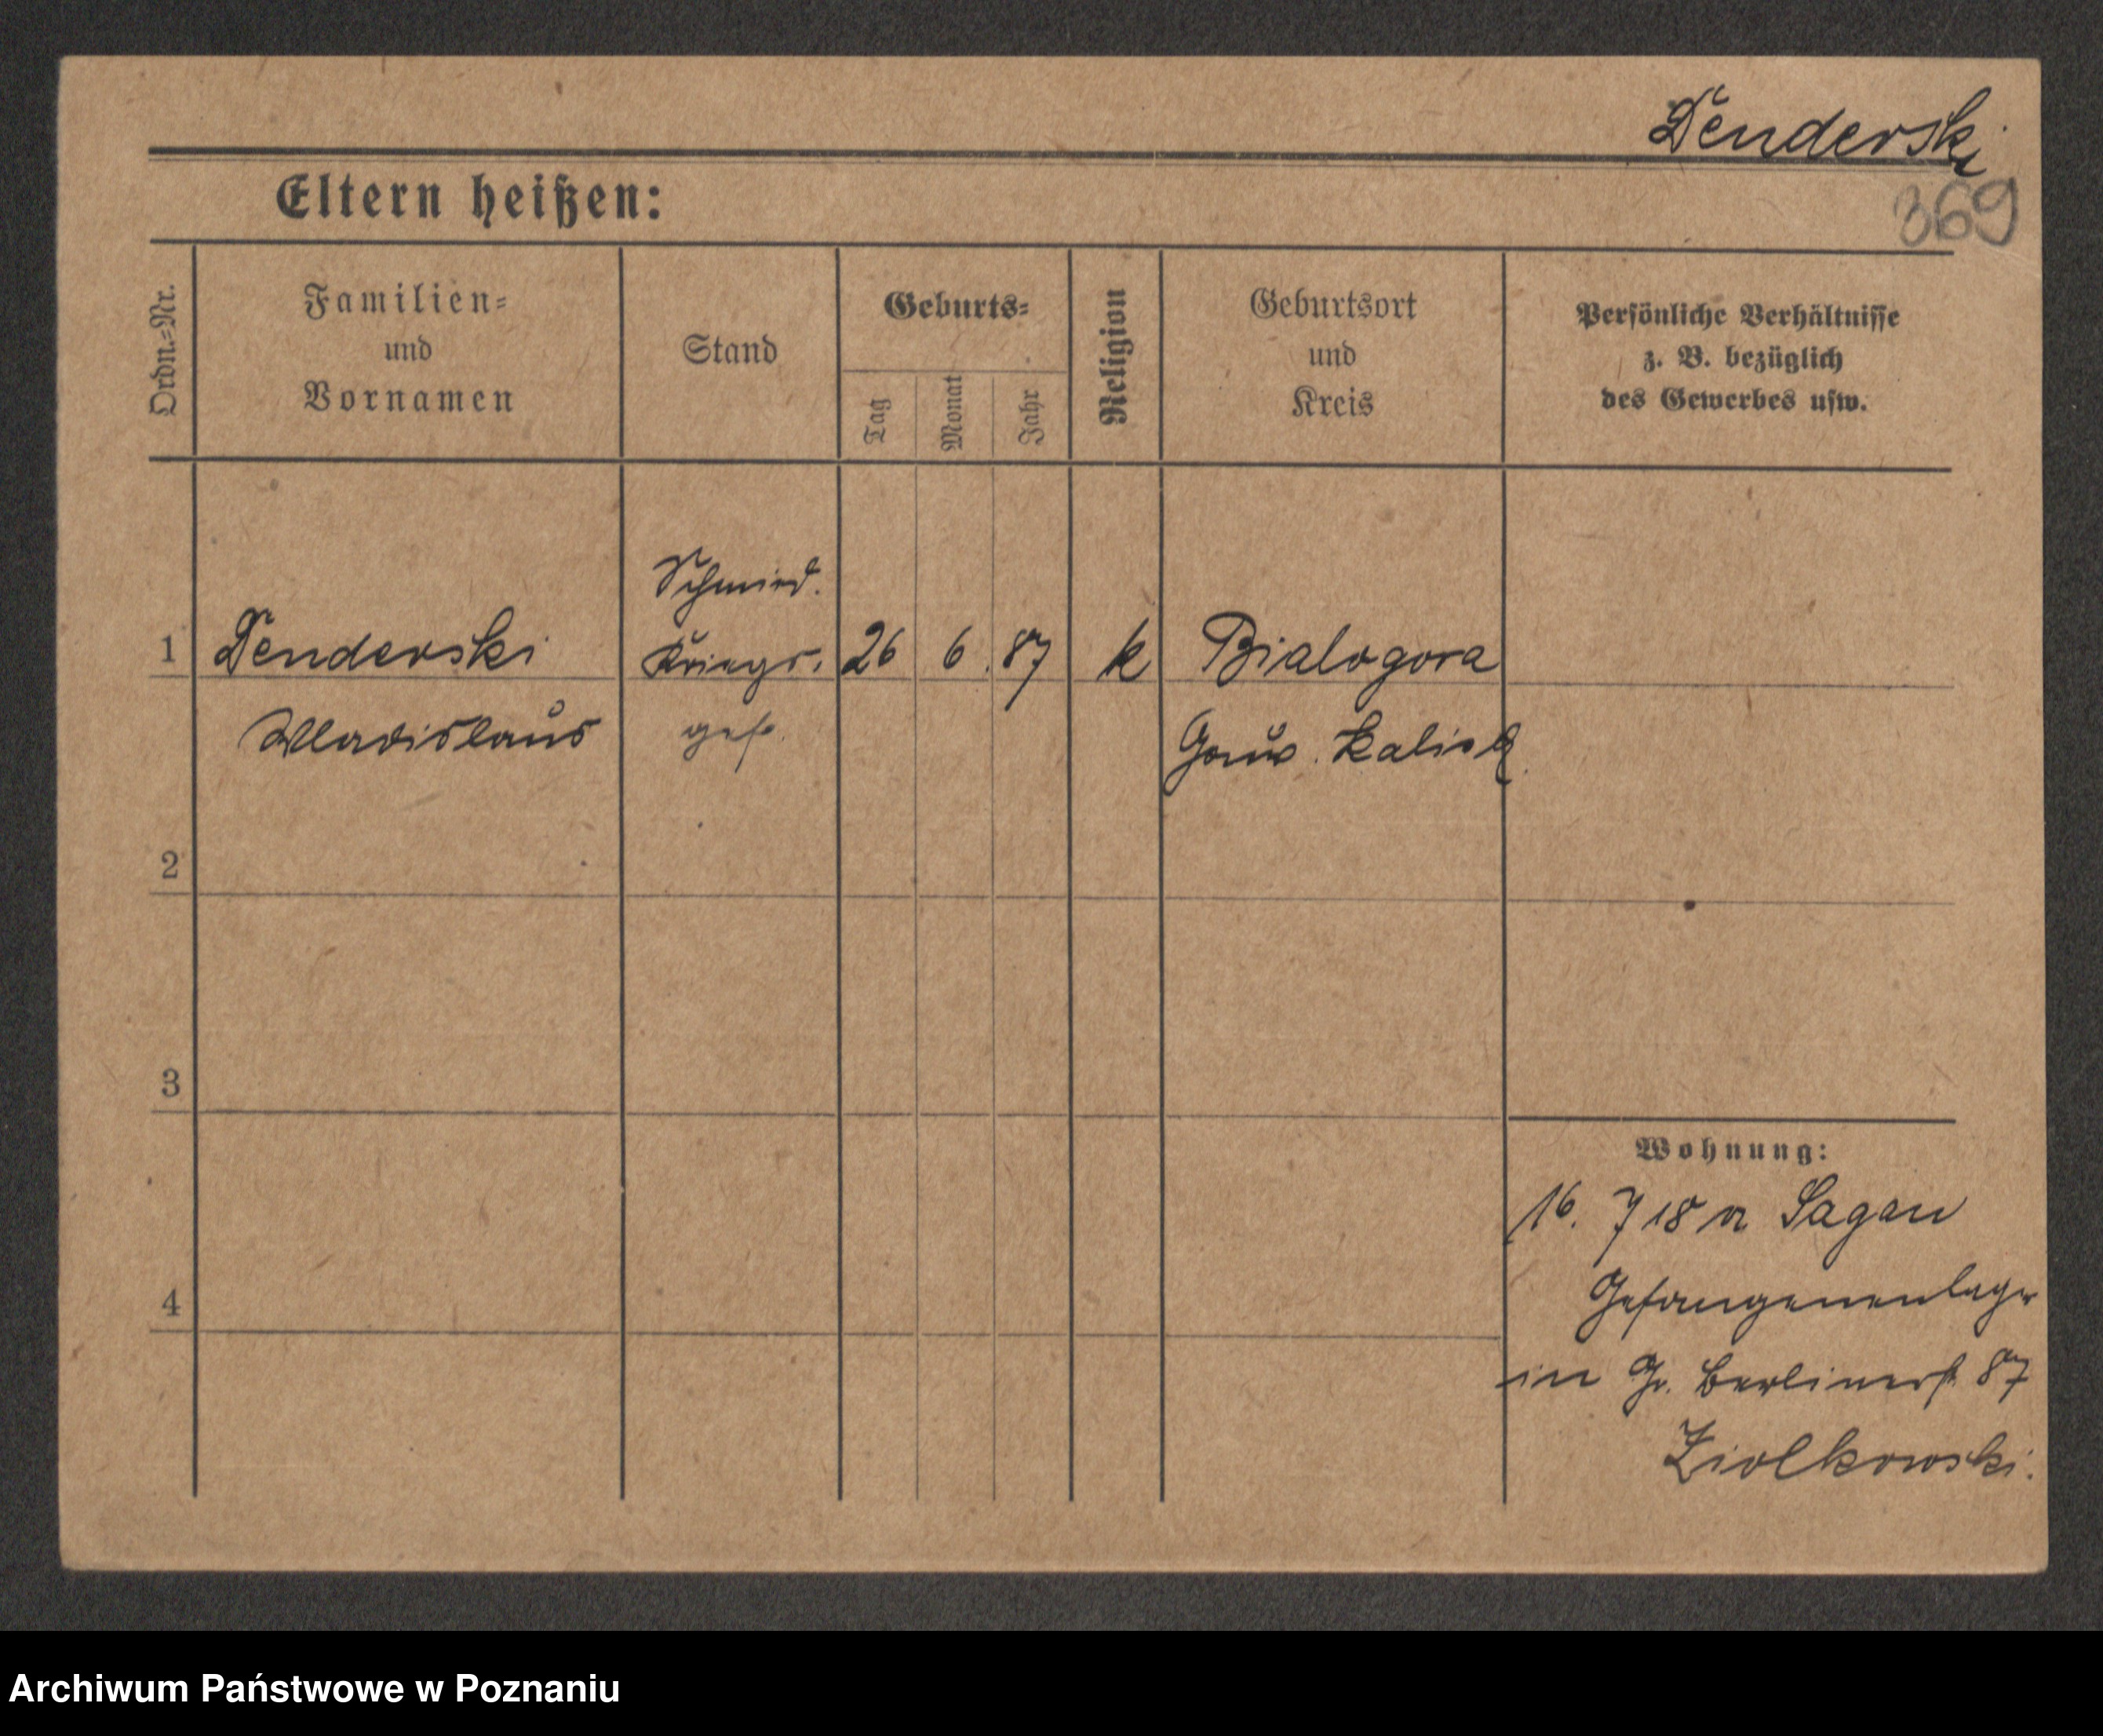 Denderski
369
Eltern heißen:
Ordn.-Nr.
Familien-
und
Vornamen
Stand
Geburts-
Tag
Monat
Jahr
Religion
Geburtsort
und
Kreis
Persönliche Verhältnisse
z. B. bezüglich
des Gewerbes usw.
Schmied.
1 Denderski Kriegs. 26 6. 87 k Bialogora
Wladislaus gef. Gouv. Kalisch
2
3
Wohnung:
16. 7 18 a Sagan
4
Gefangenenlager
in Gr. Berlinerst 87
Ziolkowski.
Archiwum Państwowe w Poznaniu